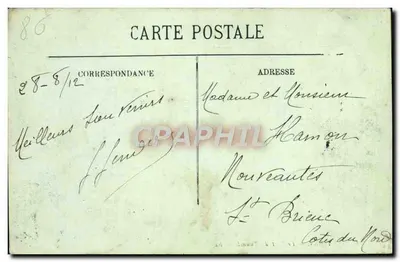 86
CARTE POSTALE
CORRESPONDANCE
28-8/12
Meilleurs Souvenirs
ADRESSE
Madame et Monsieur
Hamon
Nouveautés
St Brieuc
Cotes du Nord
CPAPHIL.com